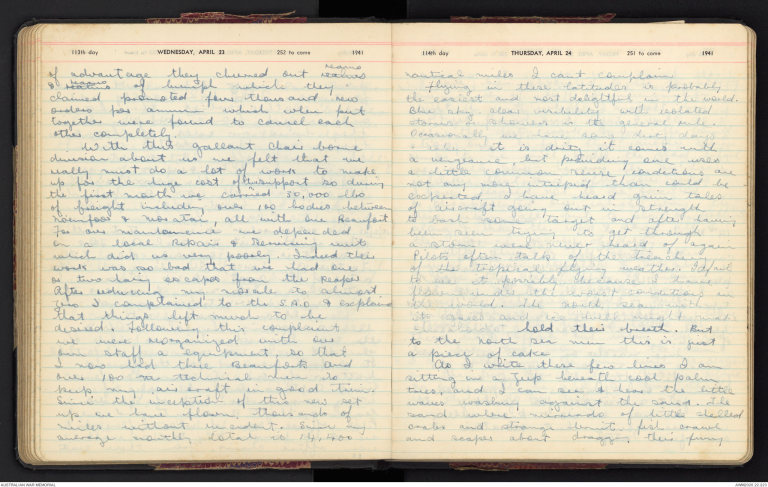 113th day WEDNESDAY, APRIL 23 252 to come 1941
of advantage they churned out reams
& of bumph which they
claimed promoted four thousand new
orders per annum, which when put
together were found to cancel each
other completely.
With this gallant chair borne
division about us we felt that we
really must do a lot of work to make
up for the huge cost of support so during
the first month we carried 50,000 lbs
of freight including over 100 bodies between
& all with one Beaufort
For our maintenance we depended
on a local Repair & Servicing unit
which did us very poorly. Indeed their
work was so bad that we had one
or two hair escapes from the reaper
After reducing our to almost
zero I complained to the S.A.O & explained
that things left much to be
desired. Following this complaint
we were reorganized with our
own staff & equipment, so that
I now had three Beauforts and
over 100 technical men to
keep my aircraft in good trim.
Since the inception of this new set
up we have flown thousands of
miles without incident. Since my
average monthly total is 14,400
114th day THURSDAY, APRIL 24 251 to come 1941
nautical miles I can't complain
Flying in these latitudes is probably
the easiest and most delightful in the world.
Blue sky clear visibility with isolated
storms & showers is the general rule.
Occasionally we have some dirty days
& when it is dirty it comes with
a vengeance, but providing one uses
a little common sense, conditions are
not any more intrepid than could be
expected. I have heard grim tales
of aircraft going out in strength
to bash some target and after having
been seen trying to get through
a storm were never heard of again
Pilots often talk of the treachery
of the tropical flying weather. I fail
to see it possibly because I have
flown under the worst conditions in
the world. The North sea with
its and ice well might make
hold their breath. But
to the north sea men this is just
a piece of cake.
As I write these few lines I am
sitting in a jeep beneath cool palm
trees, and I can see & hear the little
waves washing against the sand. The
sand where myriads of little shelled
crabs and strange hermit fish crawl
and scrape about dragging their funny
AUSTRALIAN WAR MEMORIAL